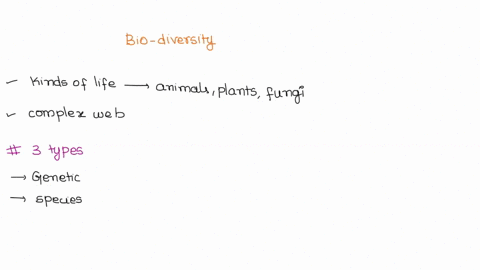 Bio-diversity
- Kinds of life → animals, plants, fungi
- complex web
# 3 types
→ Genetic
→ species